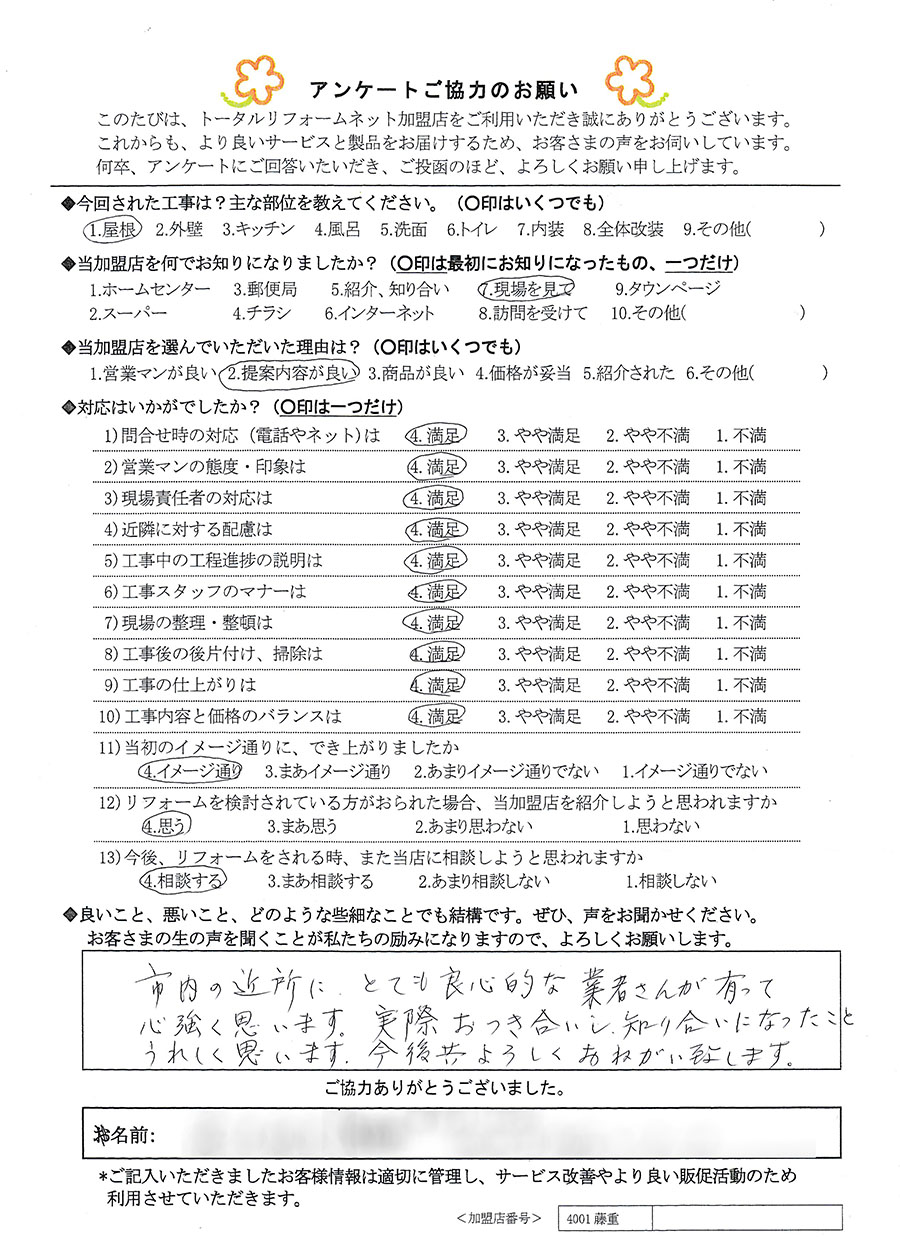 アンケートご協力のお願い
このたびは、トータルリフォームネット加盟店をご利用いただき誠にありがとうございます。
これからも、より良いサービスと製品をお届けするため、お客さまの声をお伺いしています。
何卒、アンケートにご回答いたいだき、ご投函のほど、よろしくお願い申し上げます。
◆今回された工事は？主な部位を教えてください。（〇印はいくつでも）
1.屋根 2.外壁 3.キッチン 4.風呂 5.洗面 6.トイレ 7.内装 8.全体改装 9.その他( )
◆当加盟店を何でお知りになりましたか？（〇印は最初にお知りになったもの、一つだけ）
1.ホームセンター 3.郵便局 5.紹介、知り合い 7.現場を見て 9.タウンページ
2.スーパー 4.チラシ 6.インターネット 8.訪問を受けて 10.その他( )
◆当加盟店を選んでいただいた理由は？（〇印はいくつでも）
1.営業マンが良い 2.提案内容が良い 3.商品が良い 4.価格が妥当 5.紹介された 6.その他( )
◆対応はいかがでしたか？（〇印は一つだけ）
1)問合せ時の対応（電話やネット)は 4.満足 3.やや満足 2.やや不満 1.不満
2)営業マンの態度・印象は 4.満足 3.やや満足 2.やや不満 1.不満
3)現場責任者の対応は 4.満足 3.やや満足 2.やや不満 1.不満
4)近隣に対する配慮は 4.満足 3.やや満足 2.やや不満 1.不満
5)工事中の工程進捗の説明は 4.満足 3.やや満足 2.やや不満 1.不満
6)工事スタッフのマナーは 4.満足 3.やや満足 2.やや不満 1.不満
7)現場の整理・整頓は 4.満足 3.やや満足 2.やや不満 1.不満
8)工事後の後片付け、掃除は 4.満足 3.やや満足 2.やや不満 1.不満
9)工事の仕上がりは 4.満足 3.やや満足 2.やや不満 1.不満
10)工事内容と価格のバランスは 4.満足 3.やや満足 2.やや不満 1.不満
11)当初のイメージ通りに、でき上がりましたか
4.イメージ通り 3.まあイメージ通り 2.あまりイメージ通りでない 1.イメージ通りでない
12)リフォームを検討されている方がおられた場合、当加盟店を紹介しようと思われますか
4.思う 3.まあ思う 2.あまり思わない 1.思わない
13)今後、リフォームをされる時、また当店に相談しようと思われますか
4.相談する 3.まあ相談する 2.あまり相談しない 1.相談しない
◆良いこと、悪いこと、どのような些細なことでも結構です。ぜひ、声をお聞かせください。
お客さまの生の声を聞くことが私たちの励みになりますので、よろしくお願いします。
市内の近所に、とても良心的な業者さんが有って
心強く思います。実際おつき合いし、知り合いになったこと
うれしく思います。今後共よろしくおねがい致します。
ご協力ありがとうございました。
お名前:
*ご記入いただきましたお客様情報は適切に管理し、サービス改善やより良い販促活動のため
利用させていただきます。
＜加盟店番号＞ 4001 藤重